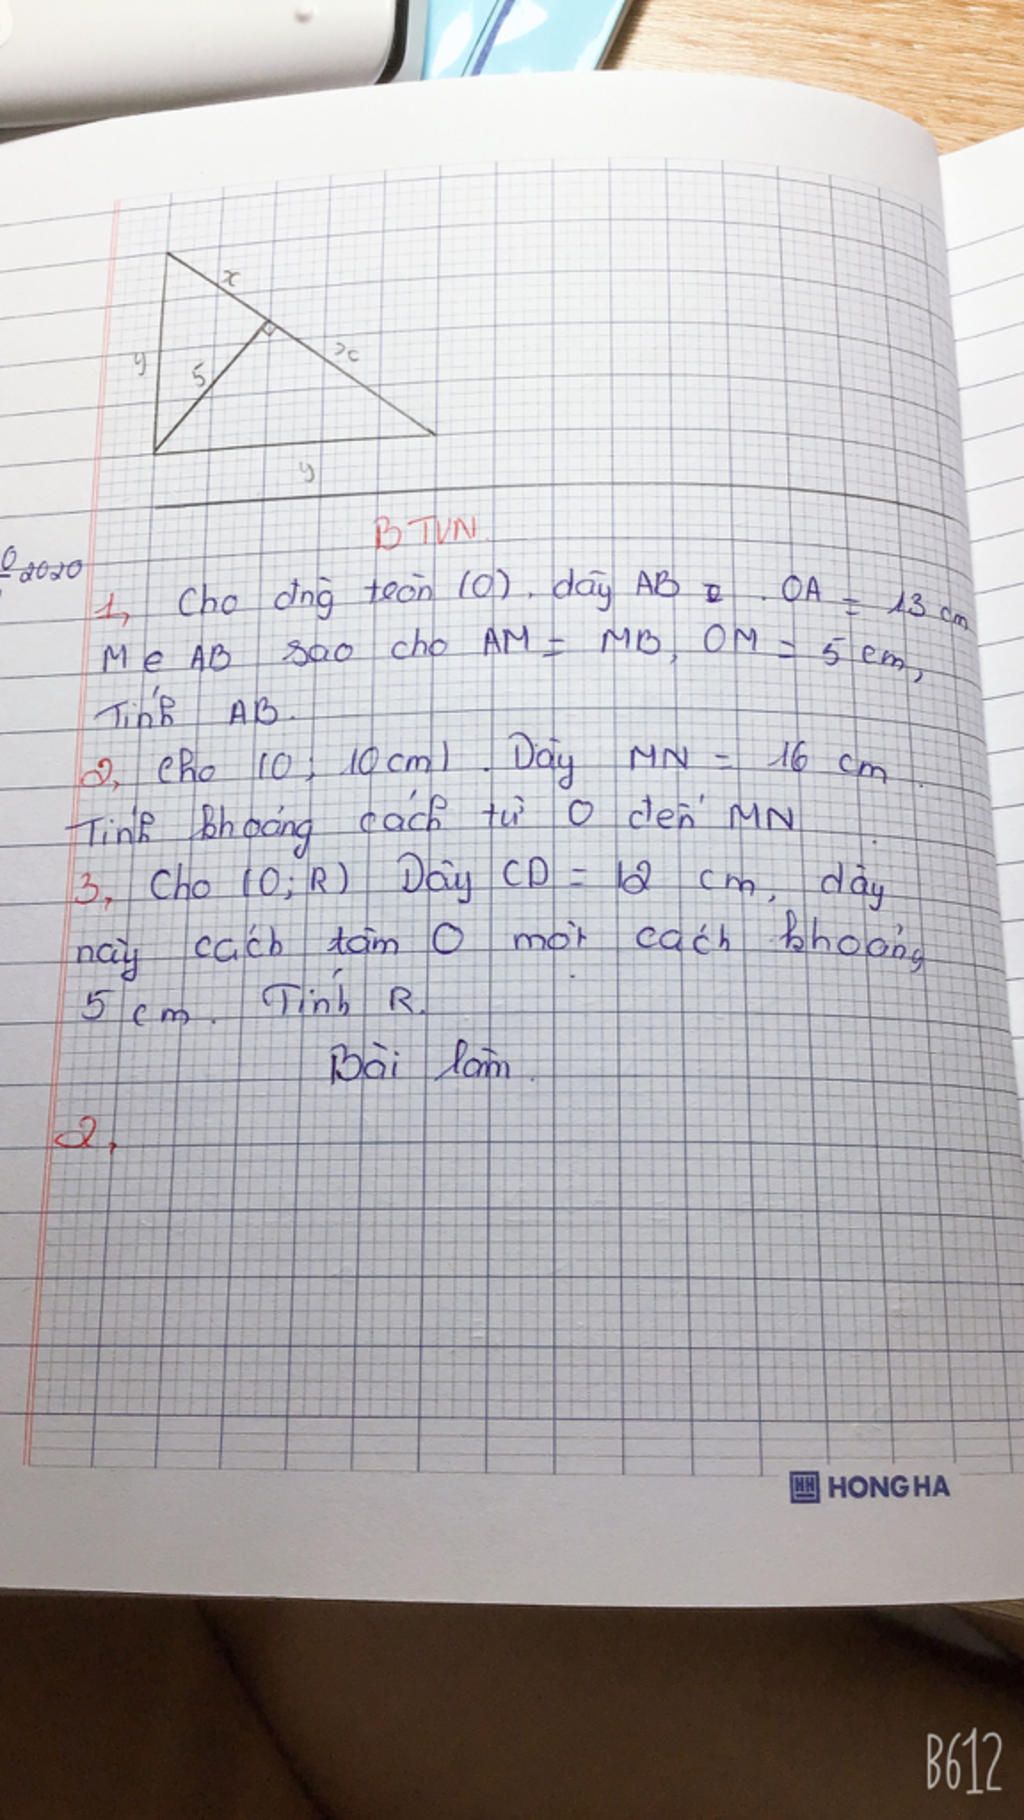 x
x
y
5
y
BTVN
2020
1, Cho đng tròn (O). dây AB OA = 13 cm
M ∈ AB sao cho AM = MB, OM = 5 cm,
Tính AB.
2, Cho (O; 10cm). Dây MN = 16 cm.
Tính khoảng cách từ O đến MN.
3, Cho (O; R) Dây CD = 12 cm, dây
này cách tâm O một cách khoảng
5 cm. Tính R.
Bài làm.
2,
HH HONG HA
B612